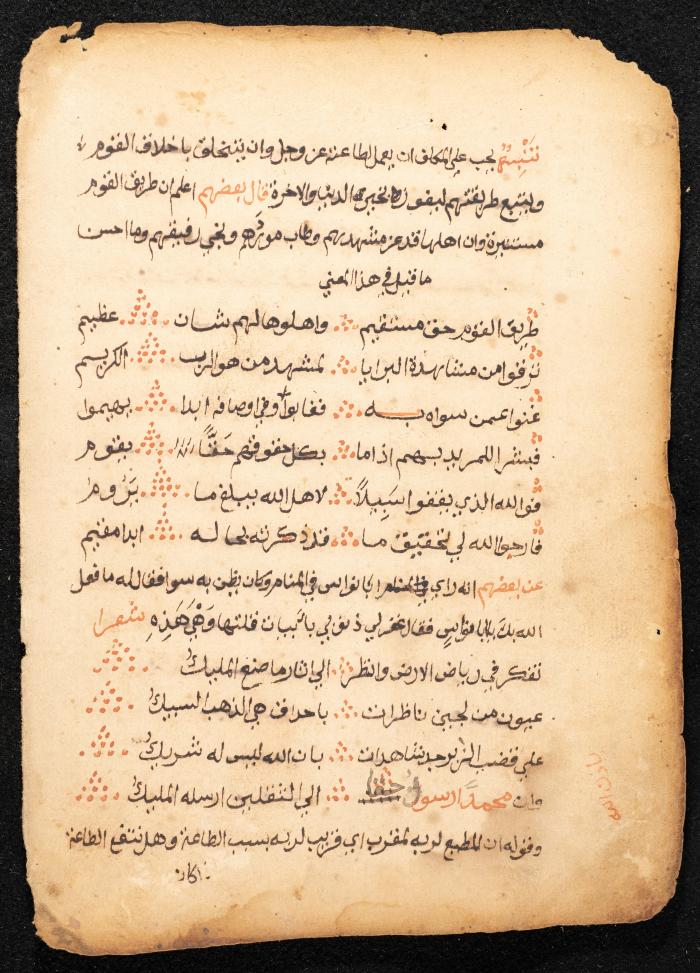 تنبيه يجب علي المكلف ان يعمل لطاعته عز وجل وان يتخلق باخلاق القوم
ويتبع طريقتهم ليفوز بخيري الدنيا والاخرة قال بعضهم اعلم ان طريق القوم
مستنيرة وان اهلها قد عز مشهدهم وطاب موردهم ونجي رفيقهم وما احسن
ما قيل في هذا المعني
طريق القوم حق مستقيم واهلوها لهم شان عظيم
ترقوا من مشاهدة البرايا لمشهد من هو الرب الكريم
غنوا عمن سواه به فقالوا وفي اوصافه ابدا يهيموا
فبشرا للمريد بهم اذا ما بكل حقوقهم حقا يقوم
هو الله الذي يقفوا سبيلا لاهل الله يبلغ ما يروم
فارجوا الله لي تحقيق ما قد ذكرته بحاله ابدا مقيم
عن بعضهم انه راي في المنام ابا نواس في المنام وكان يظن به سوا فقال له ما فعل
الله بك يا ابا نواس فقال غفر لي ذنوبي بابيات قلتها وهي هذه شعرا
تفكر في رياض الارض وانظر الي اثار ما صنع المليك
عيون من لجين ناظرات باحداق هي الذهب السبيك
علي قضب الزبرجد شاهدات بان الله ليس له شريك
وان محمدا رسول حقا الي الثقلين ارسله المليك
وقوله ان المطيع لربه لمقرب اي قريب لربه بسبب الطاعة وهل تنفع الطاعة